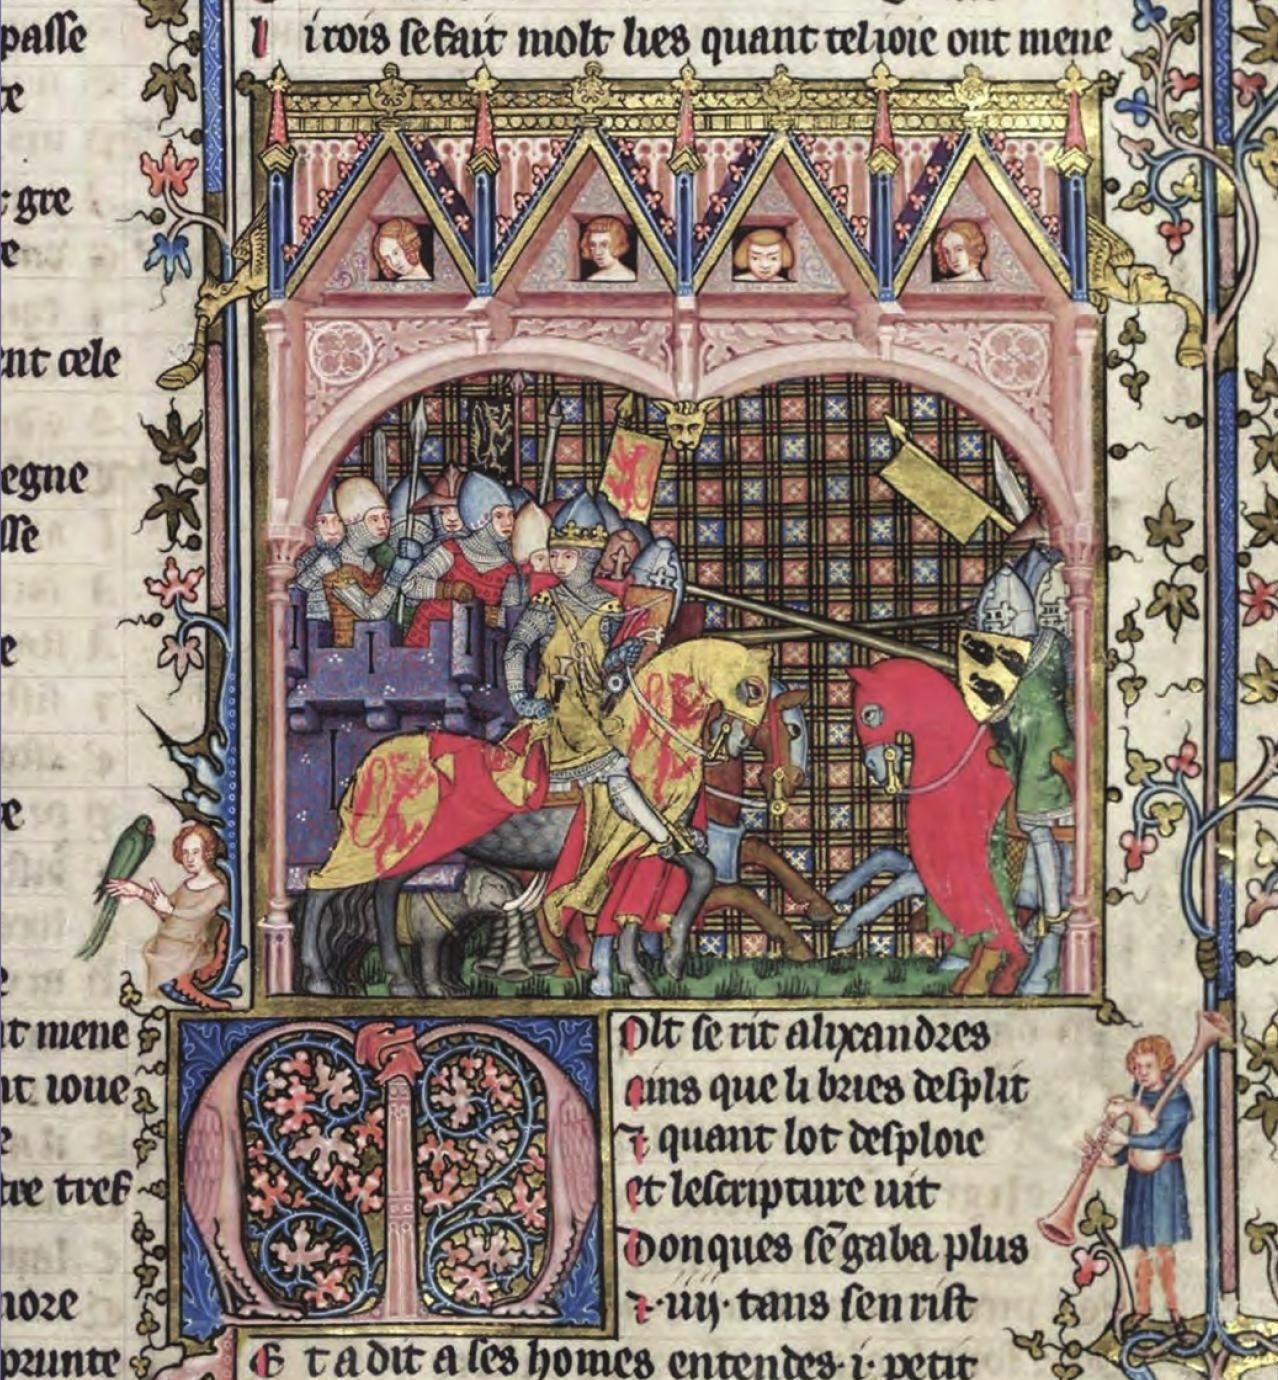 passe
te
t gre
e
ent cele
egne
sse
e
e
e
nt mene
nt ioue
e
tre tref
nore
prunte
li rois se fait molt lies quant tel ioie ont mene
Molt se rit alixandres
ains que li bries desplit
⁊ quant lot desploie
et lescripture uit
Donques sẽ gaba plus
⁊ .iiij. tans sen rist
Et a dit a ses homes entendes .i. petit